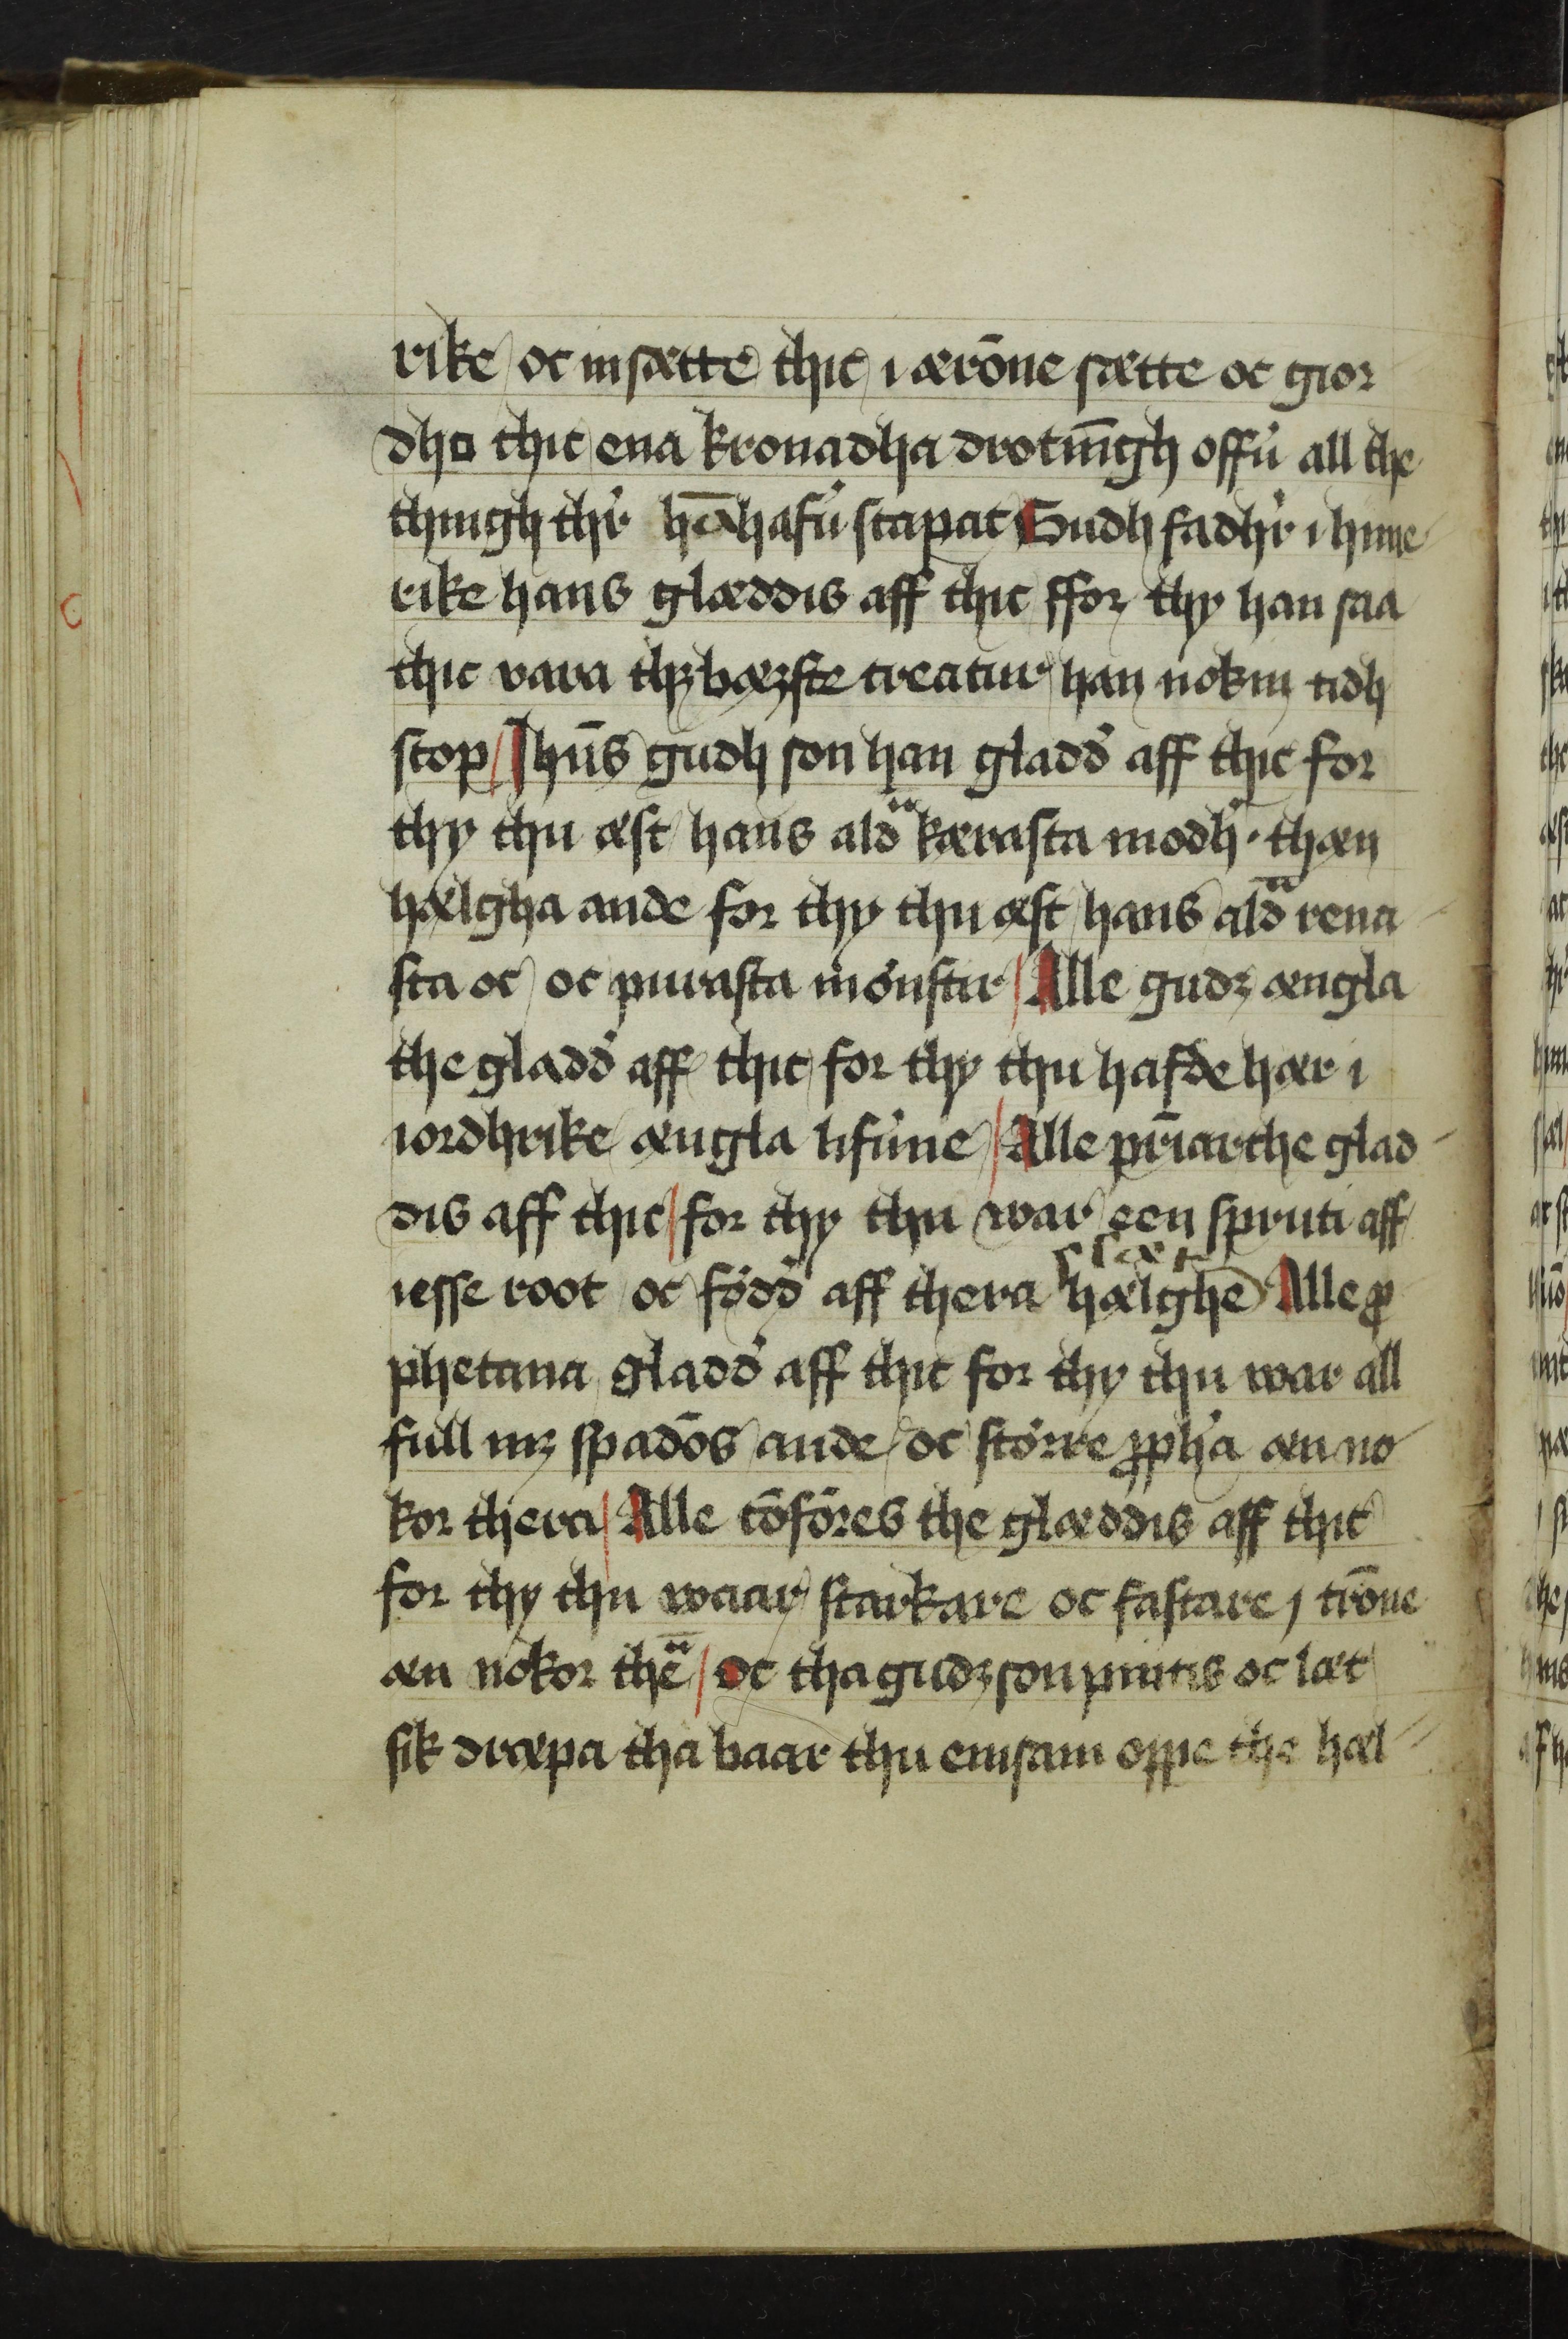 rike oc in sætte thic i ærōne sætte oc gior
dho thic ena kronadha drotnīgh offuʼ all the
thingh thʼr hā hafuʼ scapat Gudh fadhʼr i hime
rike hans glæddis aff thic ffor thy han saa
thic vara thʒ bæzste creatiur han nokin tidh
scop Jhūs gudh son han gladdʼ aff thic for
thy thu æst hans aldͣ kærasta modhʼ. thæn
hælgha ande for thy thu æst hans aldͣ rena
sta oc oc purasta mönstir Alle gudz ængla
the gladdʼ aff thic for thy thu hafde hær i
iordhrike ængla lifuʼne Alle pīarche glad
dis aff thic for thy thu war een spruti aff
slækt
iesse root oc föddʼ aff thera hælghe Alle ꝓ
phetana gladdʼ aff thic for thy thu war all
full mʒ spadōs ande oc större ꝓphʼa æn no
kor thera Alle cōföres the glæddis aff thic
for thy thu waar starkare oc fastare j trōne
æn nokor theͣ oc tha gudz son pintis oc læt
sik dræpa tha baar thu ensam oppe the hæl